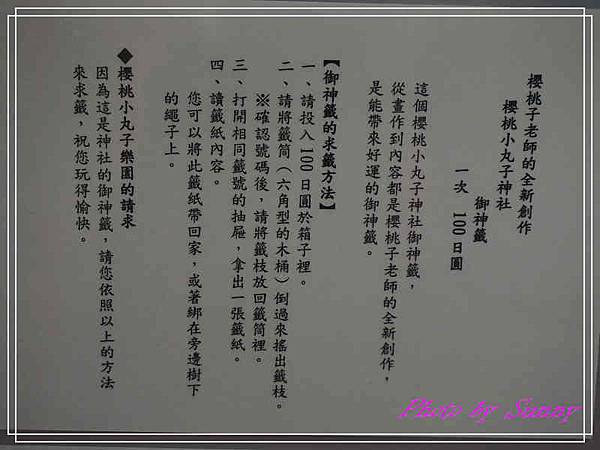 櫻桃子老師的全新創作
櫻桃小丸子神社
御神籤
一次 100日圓
這個櫻桃小丸子神社御神籤，
從畫作到內容都是櫻桃子老師的全新創作，
是能帶來好運的御神籤。
【御神籤的求籤方法】
一、請投入100日圓於箱子裡。
二、請將籤筒（六角型的木桶）倒過來搖出籤枝。
※確認號碼後，請將籤枝放回籤筒裡。
三、打開相同籤號的抽屜，拿出一張籤紙。
四、讀籤紙內容。
您可以將此籤紙帶回家，或著綁在旁邊樹下
的繩子上。
◆櫻桃小丸子樂園的請求
因為這是神社的御神籤，請您依照以上的方法
來求籤，祝您玩得愉快。
Photo by Sunny